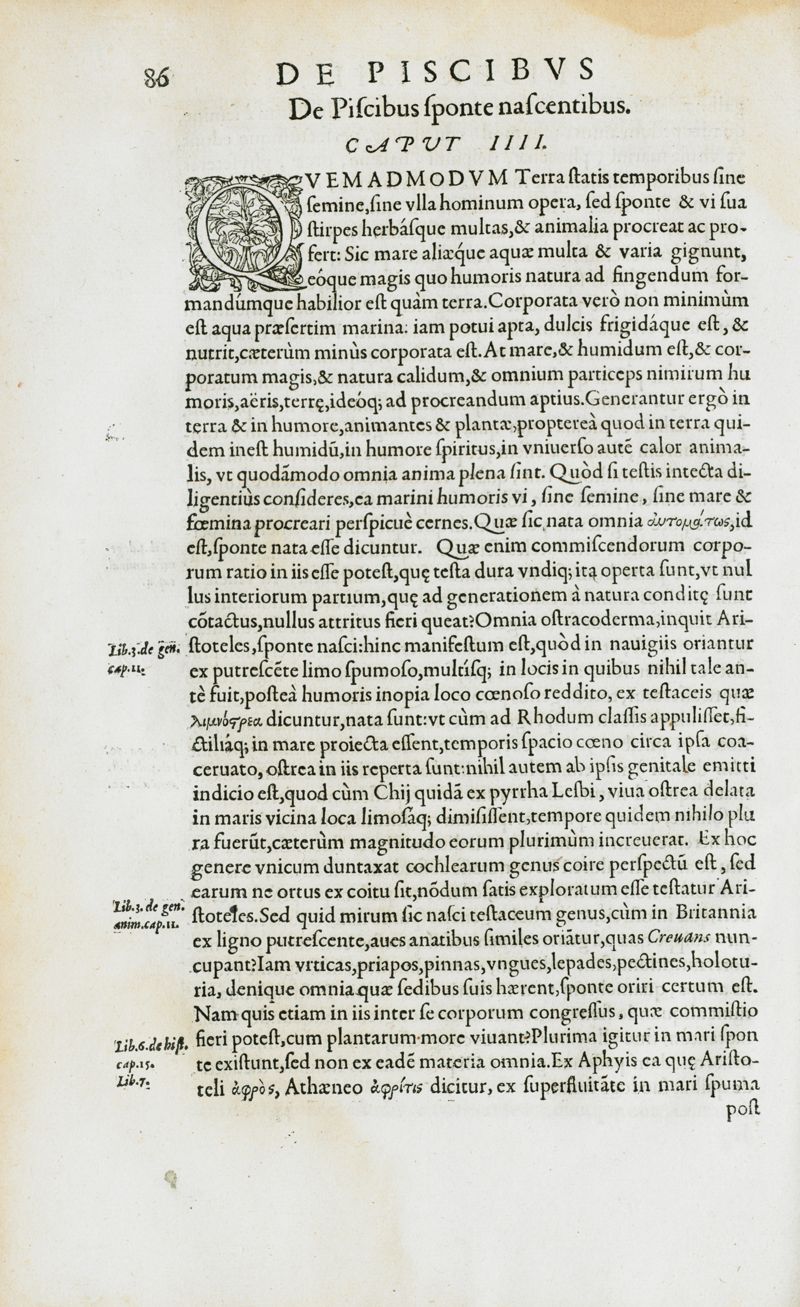 86 DE PISCIBVS
De Piſcibus ſponte naſcentibus.
CAPUT IIII.
QVEMADMODVM Terra ſtatis temporibus ſine
ſemine,ſine vlla hominum opera, ſed ſponte & vi ſua
ſtirpes herbáſque multas,& animalia procreat ac pro-
fert: Sic mare aliæq́ue aquæ multa & varia gignunt,
eóque magis quo humoris natura ad fingendum for-
mandúmque habilior eſt quàm terra.Corporata verò non minimùm
eſt aqua præſertim marina: iam potui apta, dulcis frigidáque eſt, &
nutrit,cæterùm minùs corporata eſt.At mare,& humidum eſt,& cor-
poratum magis,& natura calidum,& omnium particeps nimirum hu
moris,aëris,terrę,ideóq; ad procreandum aptius.Generantur ergò in
terra & in humore,animantes & plantæ,proptereà quod in terra qui-
dem ineſt humidū,in humore ſpiritus,in vniuerſo autē calor anima-
lis, vt quodāmodo omnia anima plena ſint. Quòd ſi teſtis intecta di-
ligentiùs conſideres,ea marini humoris vi, ſine ſemine, ſine mare &
fœmina procreari perſpicuè cernes.Quæ ſic nata omnia αὐτομάτως,id
eſt,ſponte nata eſſe dicuntur. Quæ enim commiſcendorum corpo-
rum ratio in iis eſſe poteſt,quę teſta dura vndiq; ita operta ſunt,vt nul
lus interiorum partium,quę ad generationem à natura conditę ſunt
cōtactus,nullus attritus fieri queat?Omnia oſtracoderma,inquit Ari-
Lib.3.de gen. ſtoteles,ſponte naſci:hinc manifeſtum eſt,quòd in nauigiis oriantur
cap.11. ex putreſcēte limo ſpumoſo,multíſq; in locis in quibus nihil tale an-
tè fuit,poſteà humoris inopia loco cœnoſo reddito, ex teſtaceis quæ
λιμνόϛρεα dicuntur,nata ſunt:vt cùm ad Rhodum claſſis appuliſſet,fi-
ctiliáq; in mare proiecta eſſent,temporis ſpacio cœno circa ipſa coa-
ceruato, oſtrea in iis reperta ſunt:nihil autem ab ipſis genitale emitti
indicio eſt,quod cùm Chij quidā ex pyrrha Leſbi, viua oſtrea delata
in maris vicina loca limoſáq; dimiſiſſent,tempore quidem nihilo plu
ra fuerūt,cæterùm magnitudo eorum plurimùm increuerat. Ex hoc
genere vnicum duntaxat cochlearum genus coire perſpectū eſt, ſed
earum ne ortus ex coitu ſit,nōdum ſatis exploratum eſſe teſtatur Ari-
Lib.3. de gen. ſtoteles.Sed quid mirum ſic naſci teſtaceum genus,cùm in Britannia
anim.cap.11. ex ligno putreſcente,aues anatibus ſimiles oriātur,quas Creuans nun-
cupant?Iam vrticas,priapos,pinnas,vngues,lepades,pectines,holotu-
ria, denique omnia quæ ſedibus ſuis hærent,ſponte oriri certum eſt.
Nam quis etiam in iis inter ſe corporum congreſſus, quæ commiſtio
Lib.6.de hiſt. fieri poteſt,cum plantarum more viuant?Plurima igitur in mari ſpon
cap.15. te exiſtunt,ſed non ex eadē materia omnia.Ex Aphyis ea quę Ariſto-
Lib.7. teli ἀφρὸς, Athæneo ἀφρίτις dicitur, ex ſuperfluitāte in mari ſpuma
poſt